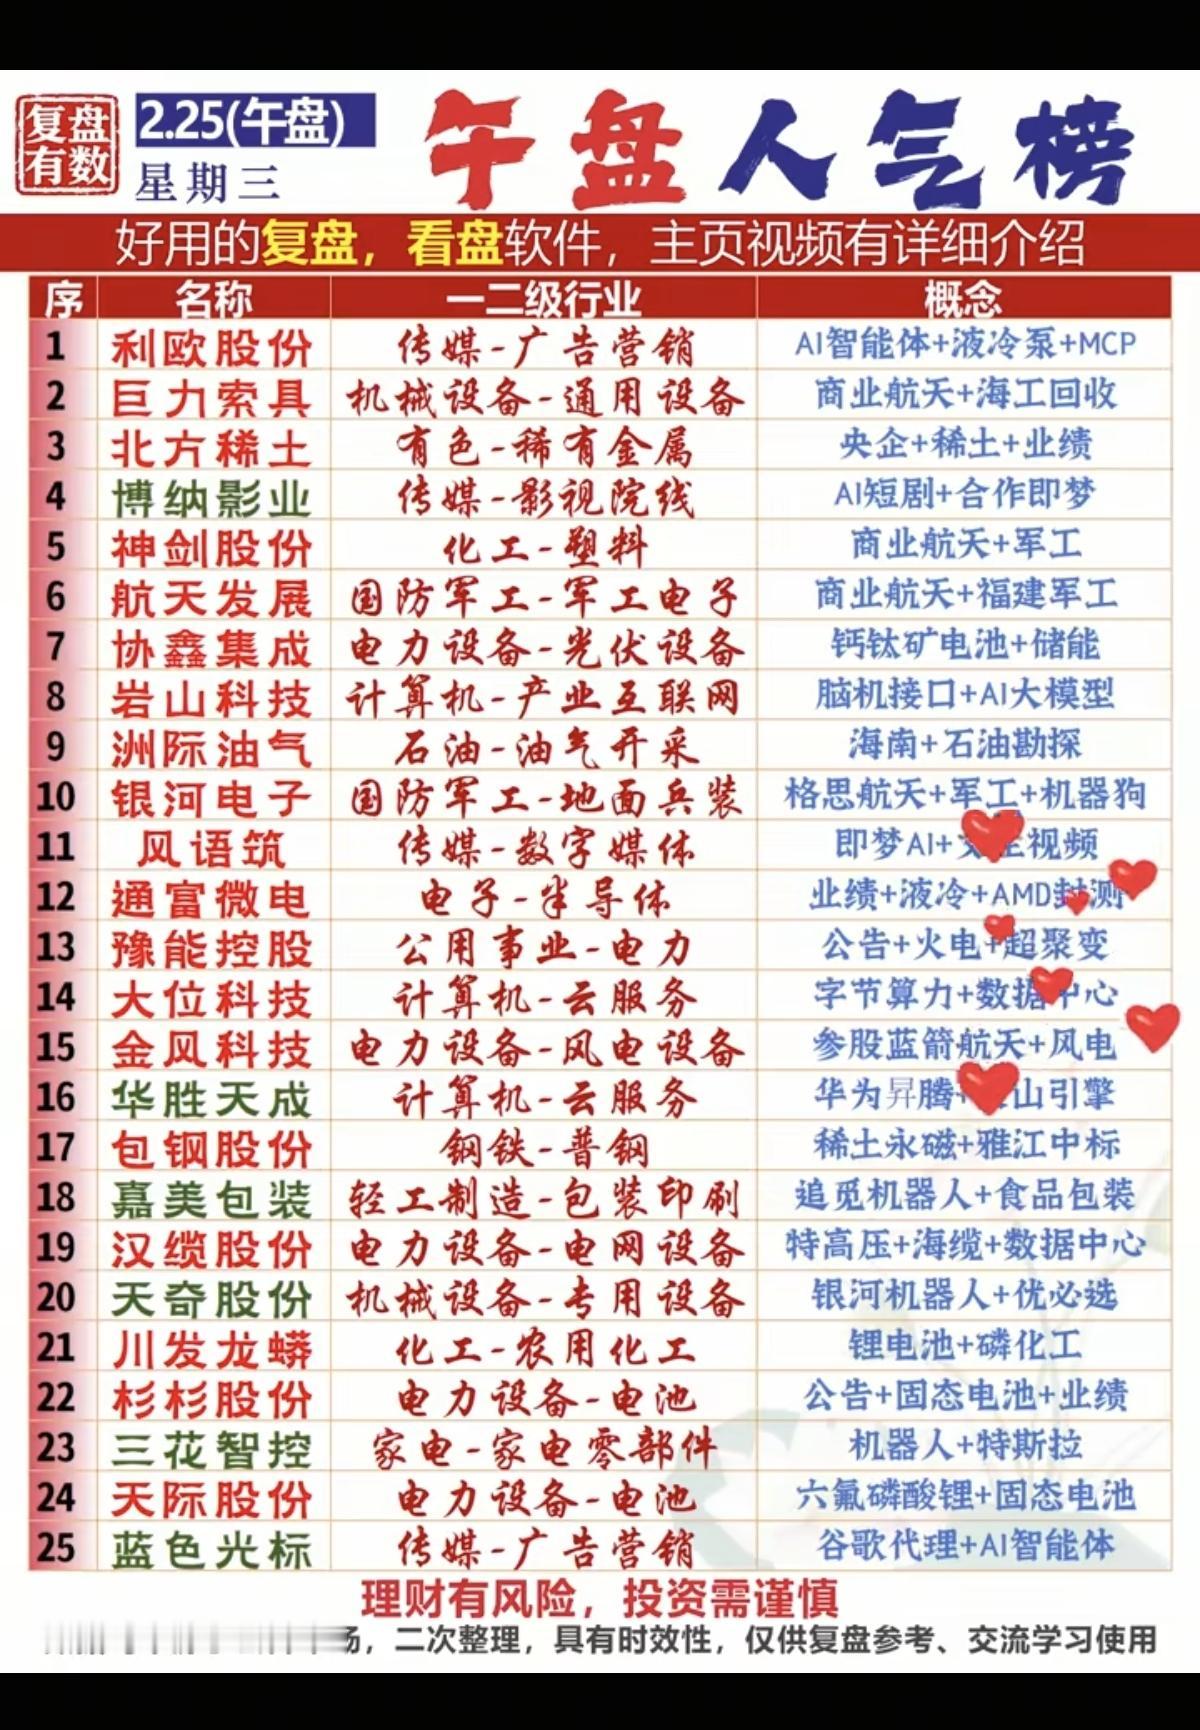 复盘有数
2.25(午盘)
星期三
午盘人气榜
好用的复盘，看盘软件，主页视频有详细介绍
序 名称 一二级行业 概念
1 利欧股份 传媒-广告营销 AI智能体+液冷泵+MCP
2 巨力索具 机械设备-通用设备 商业航天+海工回收
3 北方稀土 有色-稀有金属 央企+稀土+业绩
4 博纳影业 传媒-影视院线 AI短剧+合作即梦
5 神剑股份 化工-塑料 商业航天+军工
6 航天发展 国防军工-军工电子 商业航天+福建军工
7 协鑫集成 电力设备-光伏设备 钙钛矿电池+储能
8 岩山科技 计算机-产业互联网 脑机接口+AI大模型
9 洲际油气 石油-油气开采 海南+石油勘探
10 银河电子 国防军工-地面兵装 格思航天+军工+机器狗
11 风语筑 传媒-数字媒体 即梦AI+视频
12 通富微电 电子-半导体 业绩+液冷+AMD封测
13 豫能控股 公用事业-电力 公告+火电+超聚变
14 大位科技 计算机-云服务 字节算力+数据中心
15 金风科技 电力设备-风电设备 参股蓝箭航天+风电
16 华胜天成 计算机-云服务 华为昇腾+山引擎
17 包钢股份 钢铁-普钢 稀土永磁+雅江中标
18 嘉美包装 轻工制造-包装印刷 追觅机器人+食品包装
19 汉缆股份 电力设备-电网设备 特高压+海缆+数据中心
20 天奇股份 机械设备-专用设备 银河机器人+优必选
21 川发龙蟒 化工-农用化工 锂电池+磷化工
22 杉杉股份 电力设备-电池 公告+固态电池+业绩
23 三花智控 家电-家电零部件 机器人+特斯拉
24 天际股份 电力设备-电池 六氟磷酸锂+固态电池
25 蓝色光标 传媒-广告营销 谷歌代理+AI智能体
理财有风险，投资需谨慎
场，二次整理，具有时效性，仅供复盘参考、交流学习使用